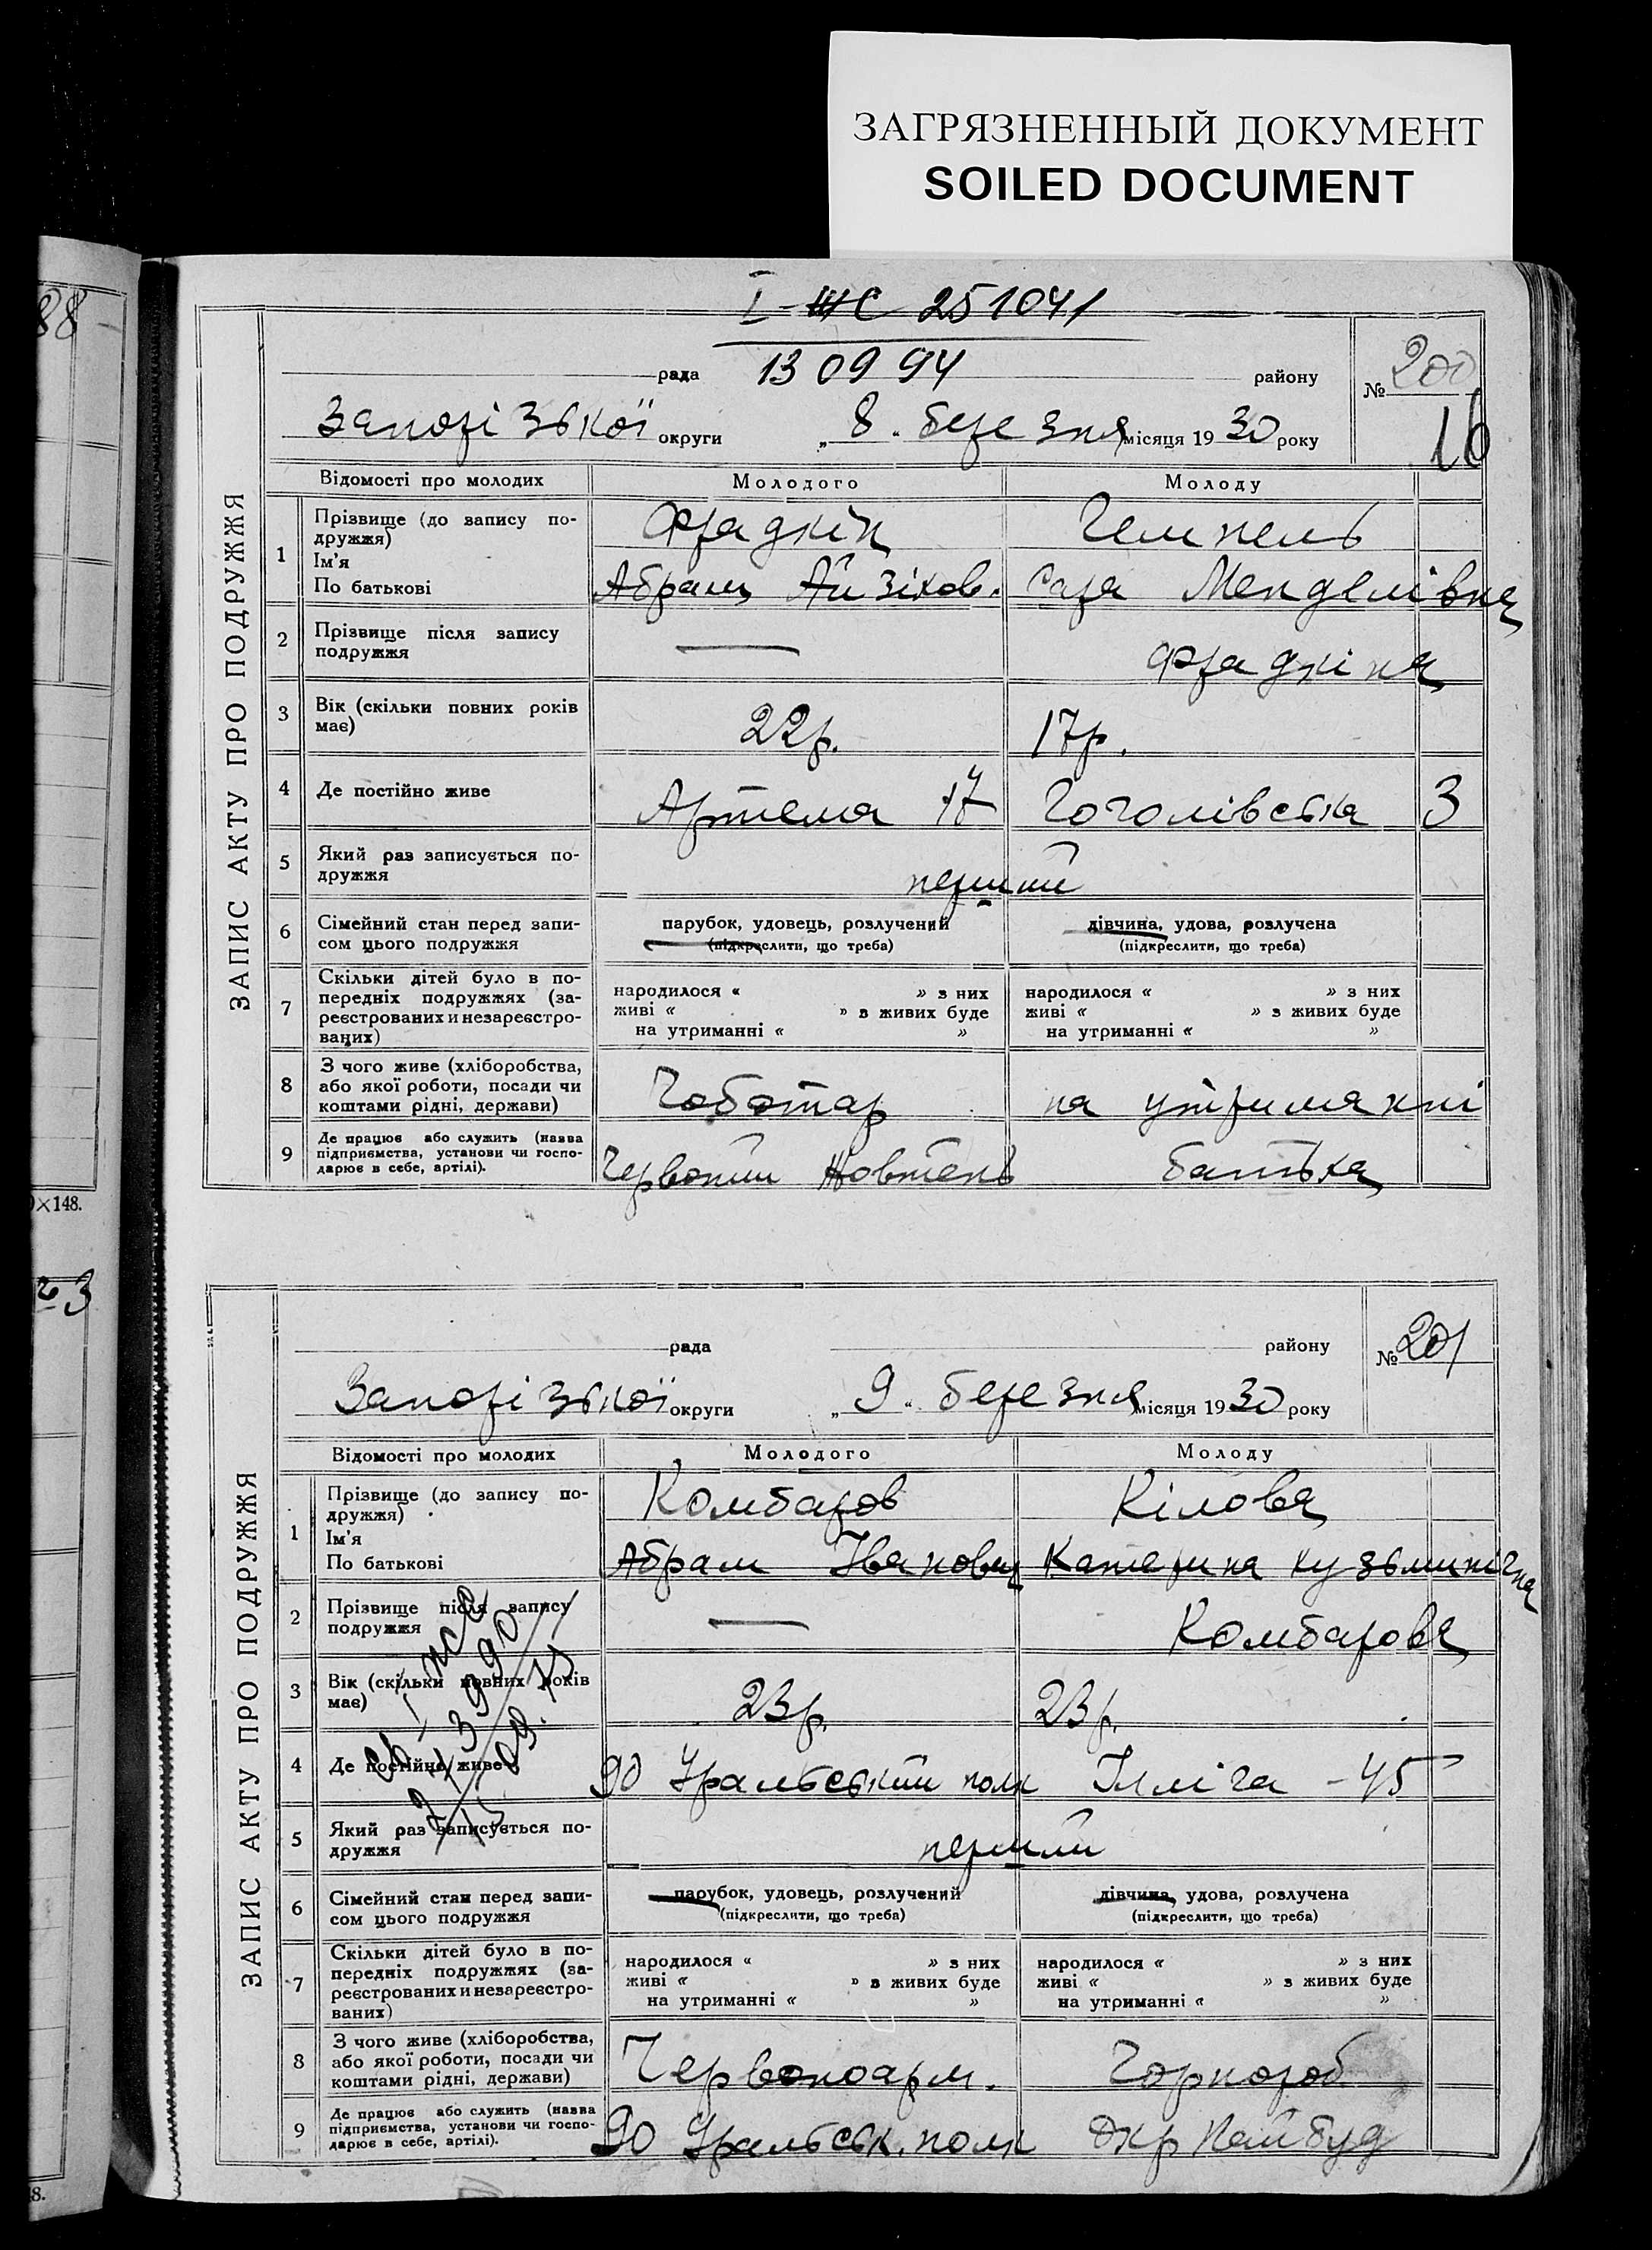 ЗАГРЯЗНЕННЫЙ ДОКУМЕНТ
SOILED DOCUMENT
88
×148.
23
8.
I-ЖС 251041
рада 13 09 94 району
№ 200
16
Запорізької округи „8“ березня місяця 1930 року
ЗАПИС АКТУ ПРО ПОДРУЖЖЯ
Відомості про молодих Молодого Молоду
1 Прізвище (до запису по-
дружжя) Фрадкін Гемпель
Ім'я
По батькові Абрам Айзіков. Сара Менделівна
2 Прізвище після запису
подружжя — Фрадкіна
3 Вік (скільки повних років
має) 22р. 17р.
4 Де постійно живе Артема 17 Гоголівська 3
5 Який раз записується по-
дружжя перший
6 Сімейний стан перед запи-
сом цього подружжя
парубок, удовець, розлучений дівчина, удова, розлучена
(підкреслити, що треба) (підкреслити, що треба)
7 Скільки дітей було в по-
передніх подружжях (за-
реєстрованих и незареєстро-
ваних)
народилося « » з них народилося « » з них
живі « » з живих буде живі « » з живих буде
на утриманні « » на утриманні « »
8 З чого живе (хліборобства,
або якої роботи, посади чи
коштами рідні, держави) Чоботар на утриманні
9 Де працює або служить (назва
підприємства, установи чи госпо-
дарює в себе, артілі). Червоний Жовтень батька
рада району
№ 201
Запорізької округи „9“ березня місяця 1930 року
ЗАПИС АКТУ ПРО ПОДРУЖЖЯ
Відомості про молодих Молодого Молоду
1 Прізвище (до запису по-
дружжя) Комбаров Кілова
Ім'я
По батькові Абрам Іванович Катерина Кузьминічна
2 Прізвище після запису
подружжя — Комбарова
3 Вік (скільки повних років
має) 23р. 23р.
4 Де постійно живе 90 Уральський полк Ілліча - 45
5 Який раз записується по-
дружжя перший
6 Сімейний стан перед запи-
сом цього подружжя
парубок, удовець, розлучений дівчина, удова, розлучена
(підкреслити, що треба) (підкреслити, що треба)
7 Скільки дітей було в по-
передніх подружжях (за-
реєстрованих и незареєстро-
ваних)
народилося « » з них народилося « » з них
живі « » з живих буде живі « » з живих буде
на утриманні « » на утриманні « »
8 З чого живе (хліборобства,
або якої роботи, посади чи
коштами рідні, держави) Червоноарм. Чорнороб
9 Де працює або служить (назва
підприємства, установи чи госпо-
дарює в себе, артілі). 90 Уральськ. полк